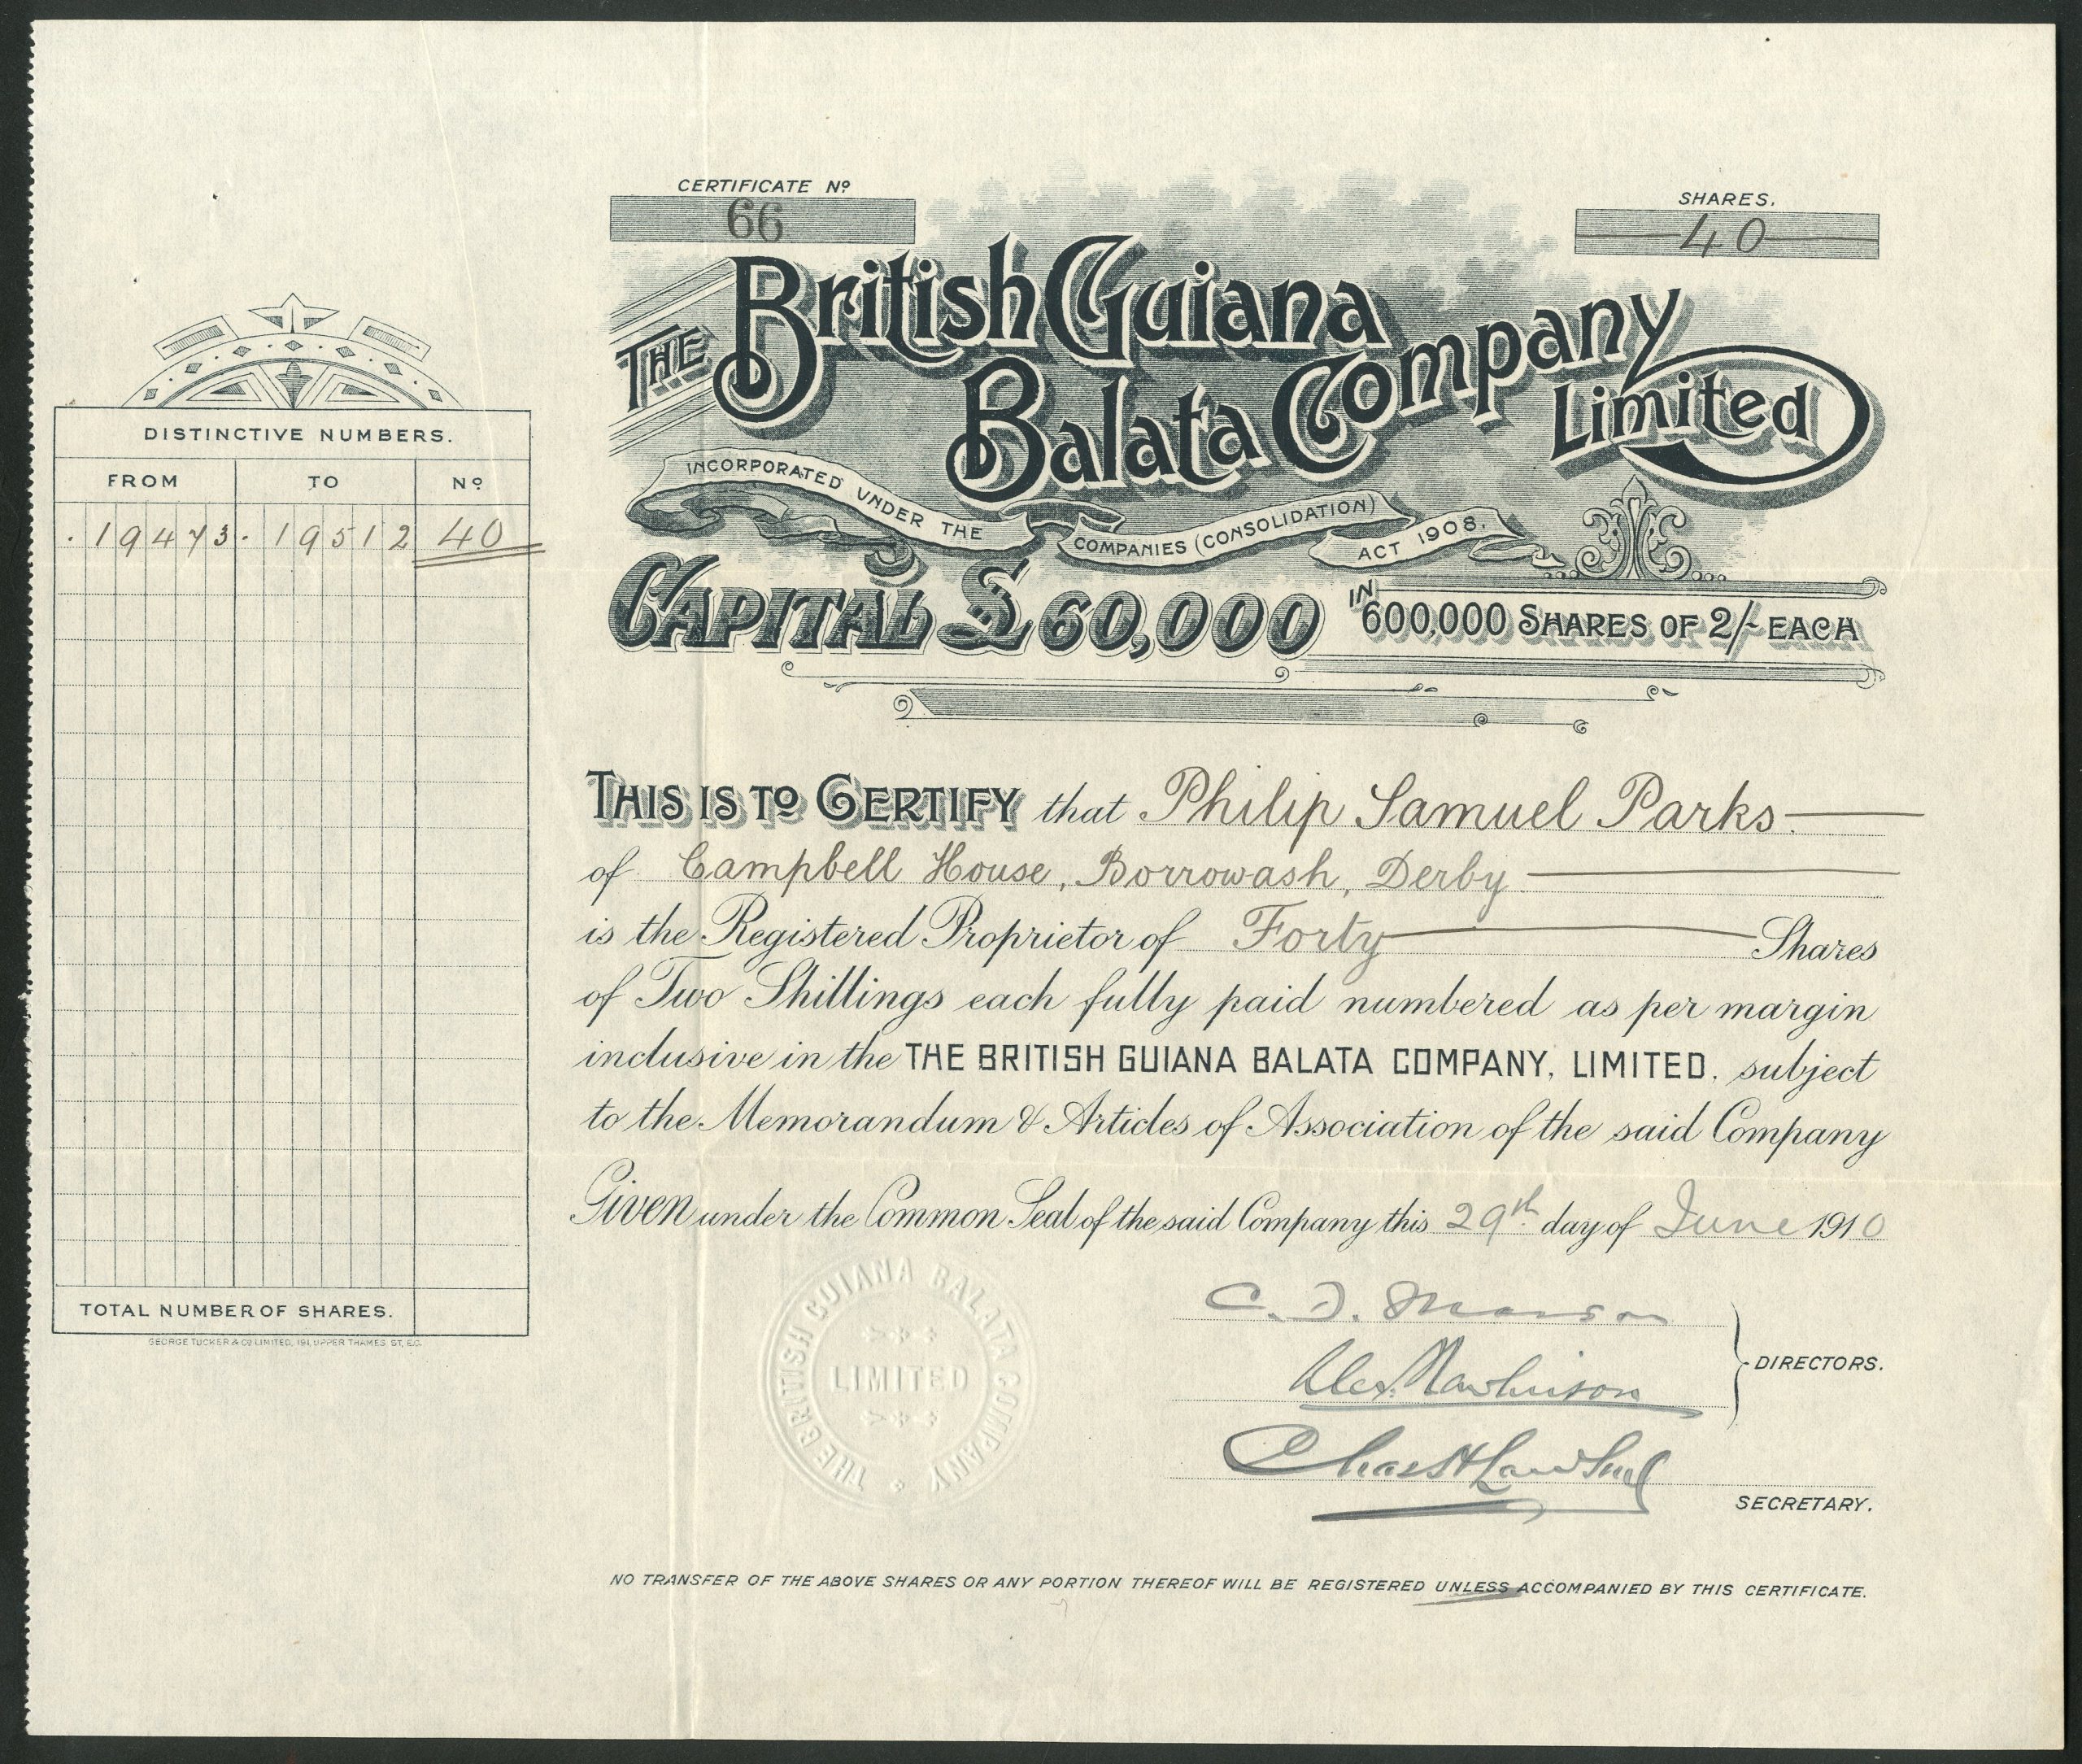 CERTIFICATE Nº
66
SHARES.
40
THE British Guiana
Balata Company
Limited
INCORPORATED UNDER THE COMPANIES (CONSOLIDATION) ACT 1908.
CAPITAL £60,000 IN 600,000 SHARES OF 2/- EACH
DISTINCTIVE NUMBERS.
FROM TO Nº
19473 19512 40
TOTAL NUMBER OF SHARES.
GEORGE TUCKER & CO LIMITED, 191, UPPER THAMES ST, E.C.
THIS IS TO CERTIFY that Philip Samuel Parks
of Campbell House, Borrowash, Derby
is the Registered Proprietor of Forty Shares
of Two Shillings each fully paid numbered as per margin
inclusive in the THE BRITISH GUIANA BALATA COMPANY, LIMITED. subject
to the Memorandum & Articles of Association of the said Company
Given under the Common Seal of the said Company this 29th day of June 1910
THE BRITISH GUIANA BALATA COMPANY
LIMITED
DIRECTORS.
SECRETARY.
NO TRANSFER OF THE ABOVE SHARES OR ANY PORTION THEREOF WILL BE REGISTERED UNLESS ACCOMPANIED BY THIS CERTIFICATE.